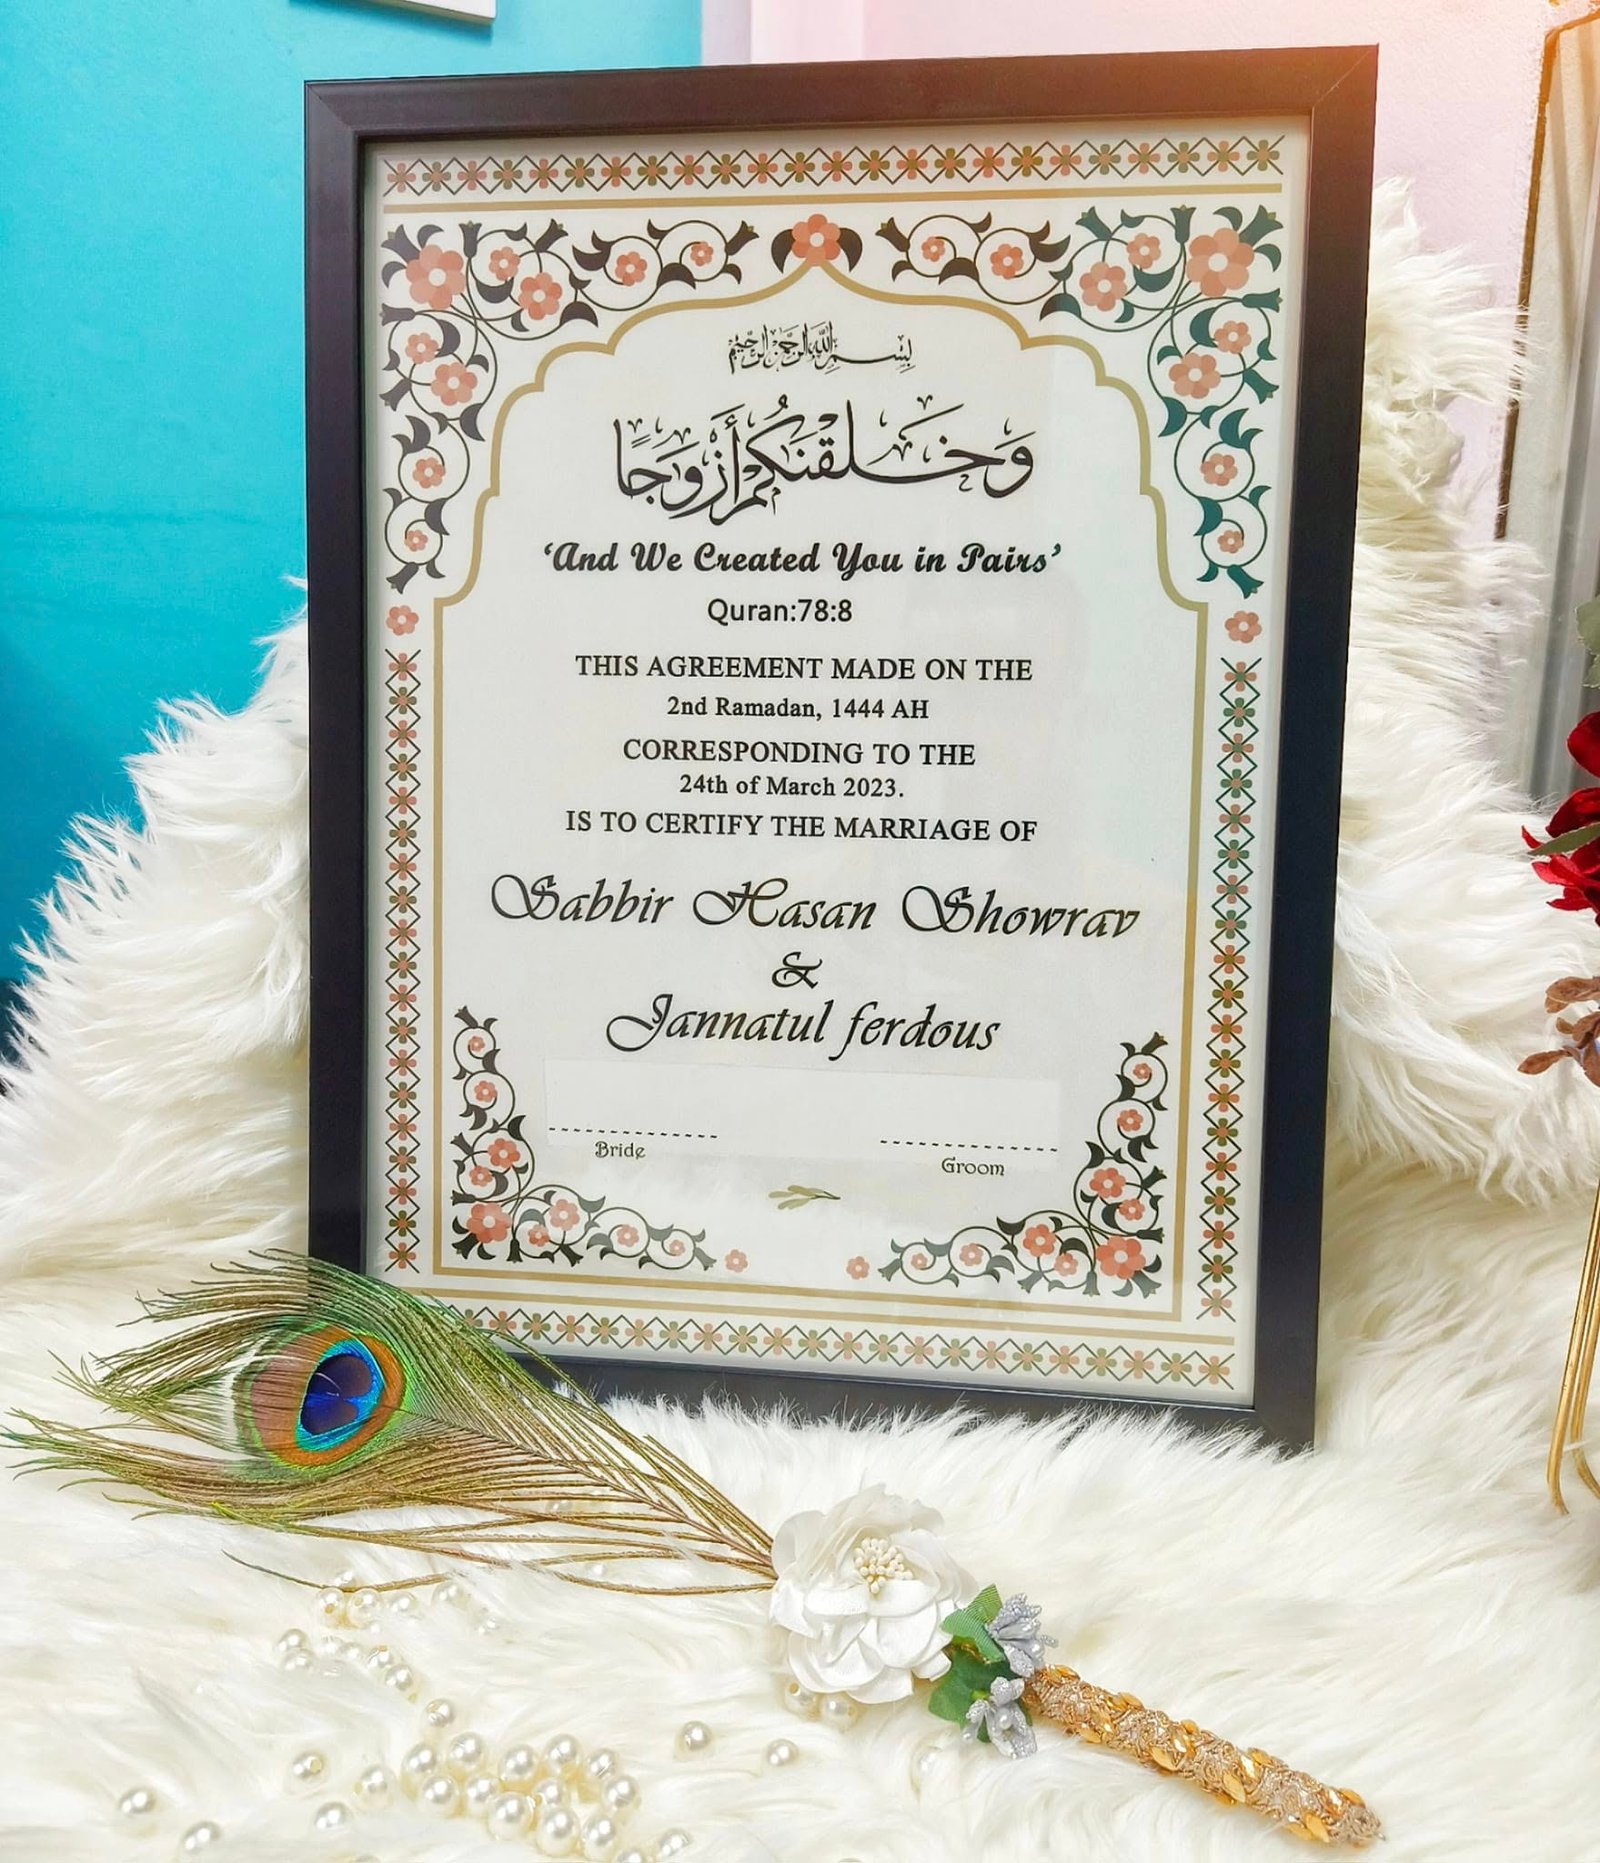 بِسْمِ اللهِ الرَّحْمٰنِ الرَّحِيْمِ
وَخَلَقْنَٰكُمْ أَزْوَٰجًا
‘And We Created You in Pairs’
Quran:78:8
THIS AGREEMENT MADE ON THE
2nd Ramadan, 1444 AH
CORRESPONDING TO THE
24th of March 2023.
IS TO CERTIFY THE MARRIAGE OF
Sabbir Hasan Showrav
&
Jannatul ferdous
Bride Groom